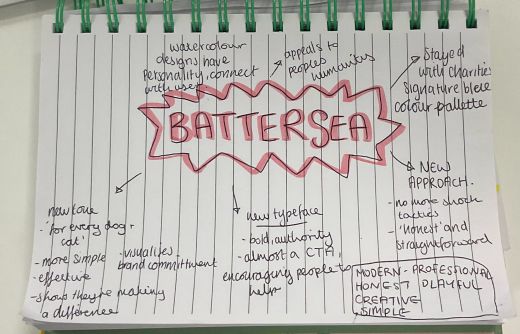 watercolour
designs have
personality, connect
with users
appeals to
peoples
humanitys
Stayed
with charities
signature blue
colour pallette
BATTERSEA
new tone
- 'for every dog +
cat'
- more simple
- effective
- shows they're making
a difference
- visualises
brand committment
new typeface
- bold, authority
- almost a CTA,
encouraging people to
help
NEW
APPROACH.
- no more shock
tactics
- 'honest' and
straightforward
MODERN - PROFESSIONAL
HONEST PLAYFUL
CREATIVE
SIMPLE